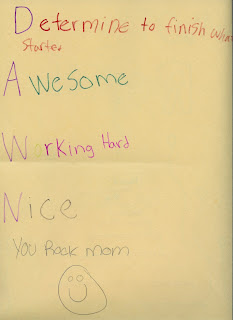 Determine to finish what
Started
Awesome
Working Hard
Nice
You Rock mom